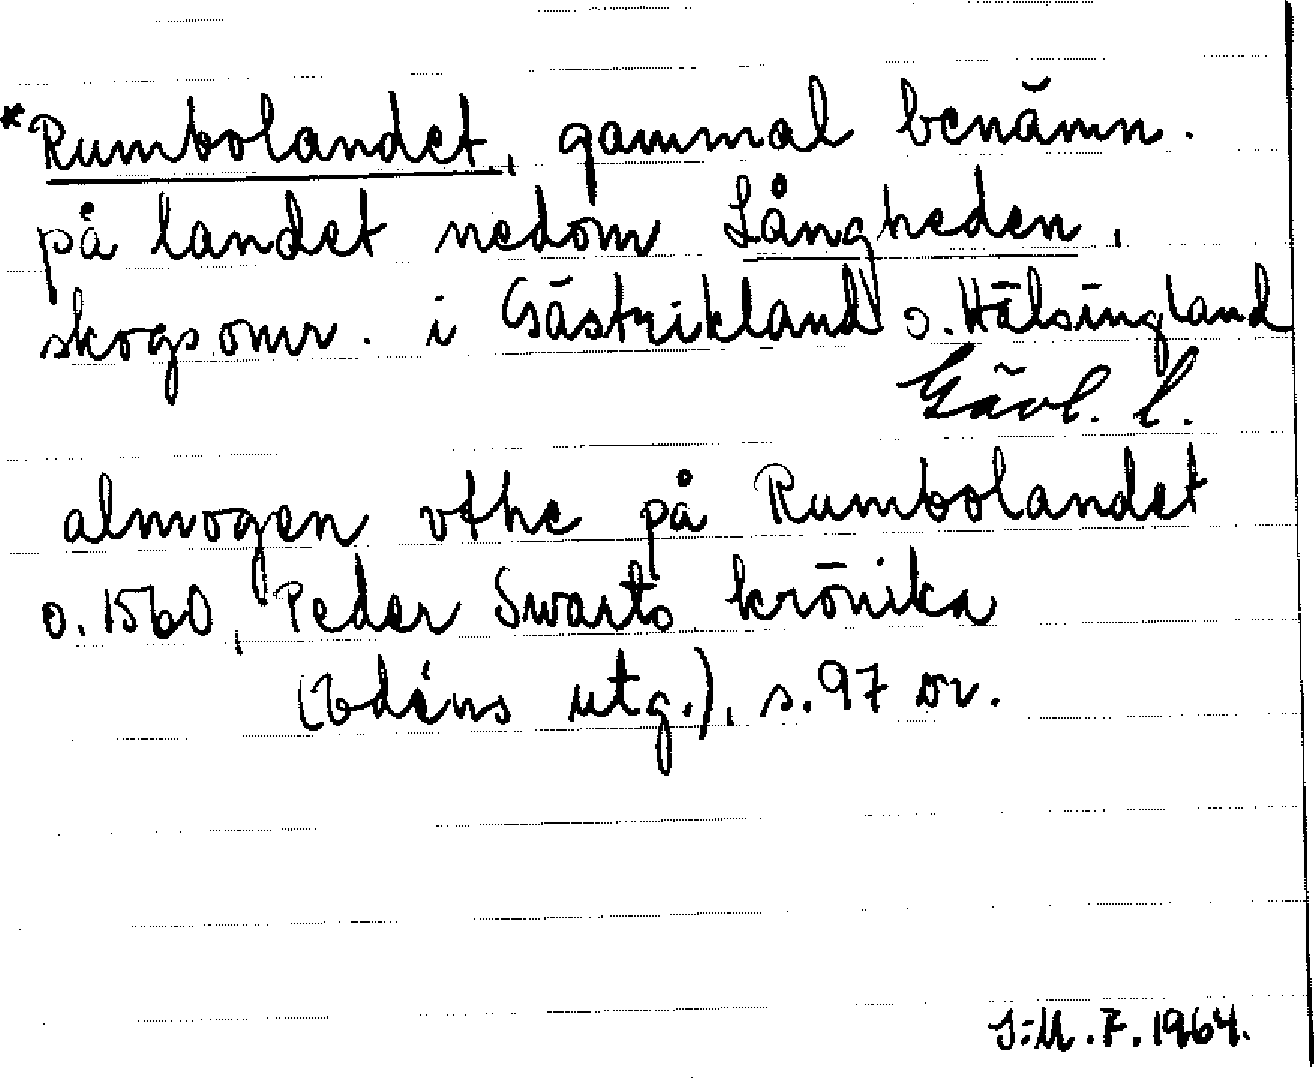 *Rumbolandet, gammal benämn.
på landet nedom Långheden,
skogsomr. i Gästrikland o. Hälsingland
Gävl. l.
almogen vthe på Rumbolandet
o. 1560, Peder Swarts krönika
(Edéns utg.), s. 97 ov.
S:M. F. 1964.